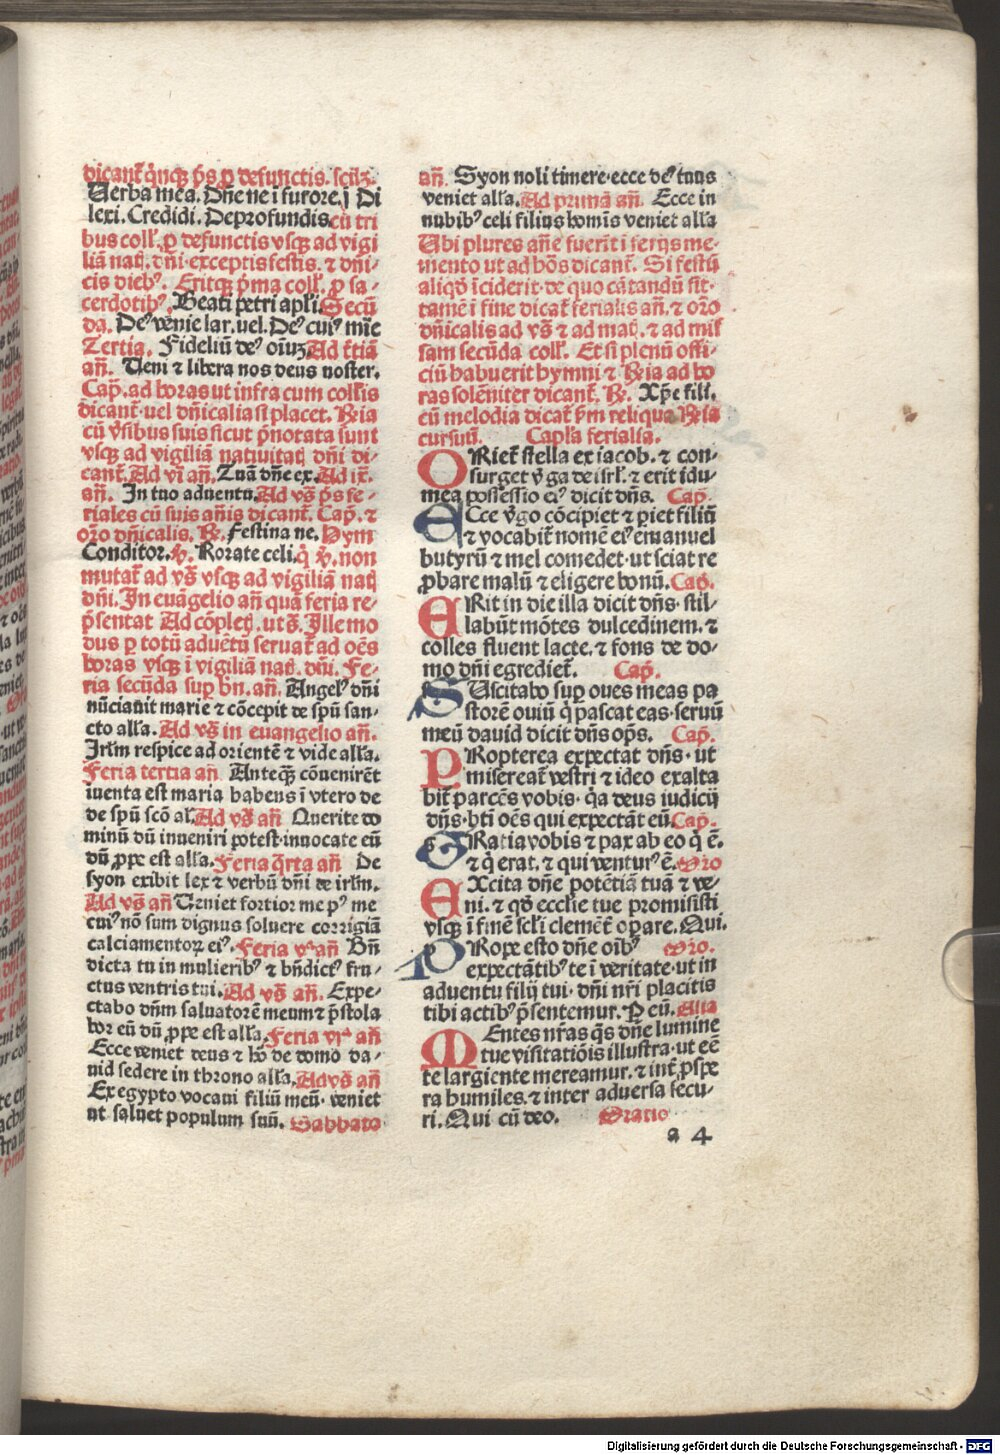 dicant̄ q̇nqꝫ p̄s ꝑ defunctis. scilꝫ.
Uerba mea. Dn̄e ne ī furore. j Di
lexi. Credidi. Deprofundis cū tri
bus coll̄. ꝓ defunctis vsqꝫ ad vigi
liā nat̄. dn̄i exceptis festis. ⁊ dn̄i-
cis dieb⁹. Eritqꝫ p̄ma coll̄. ꝓ sa-
cerdotib⁹. Beati petri apl̄i. Secū
da. De⁹ venie lar. uel. De⁹ cui⁹ mīe
Tertia. Fideliū de⁹ oīuꝫ Ad t̄tiā
an̄. Ueni ⁊ libera nos deus noster.
Cap̄. ad horas ut infra cum coll̄is
dicant̄ uel dn̄icalia si placet. R̄ia
cū v̄sibus suis sicut p̄notata sunt
vsqꝫ ad vigiliā nativitat̄ dn̄i di-
cant̄. Ad vī an̄. Tuā dn̄e ex. Ad ix̄.
an̄. In tuo aduentu. Ad vs̄ p̄s fe-
riales cū suis an̄is dicant̄. Cap̄. ⁊
or̄o dn̄icalis. R̄. Festina ne. Hym
Conditor. v̄. Rorate celi. q̇ v̄. non
mutat̄ ad vs̄ vsqꝫ ad vigiliā nat̄
dn̄i. In euāgelio an̄ quā feria re-
p̄sentat Ad cōplet̄. ut s̄. Ille mo
dus ꝑ totū aduētū seruat̄ ad oēs
horas vsqꝫ ī vigiliā nat̄. dn̄i. Fe-
ria secūda sup̄ bn̄. an̄. Angel⁹ dn̄i
nūciauit marie ⁊ cōcepit de spū san-
cto alla. Ad vs̄ in euangelio an̄.
Irlm̄ respice ad orientē ⁊ vide alla.
Feria tertia an̄ Anteqꝫ cōuenirēt
iuenta est maria habens ī vtero de
de spū scō al. Ad vs̄ an̄ Querite do
minū dū inueniri potest inuocate eū
dū ꝓpe est alla. Feria q̄rta an̄ De
syon exibit lex ⁊ verbū dn̄i de irlm̄.
Ad vs̄ an̄ Ueniet fortior me p⁹ me
cui⁹ nō sum dignus soluere corrigiā
calciamentoꝝ ei⁹. Feria vᵃ an̄ Bn̄
dicta tu in mulierib⁹ ⁊ bn̄dict⁹ fru-
ctus ventris tui. Ad vs̄ an̄. Expe-
ctabo dn̄m saluatorē meum ⁊ p̄stola
bor eū dū ꝓpe est alla. Feria vjᵃ an̄
Ecce veniet deus ⁊ hō de domo da-
uid sedere in throno alla. Ad vs̄ an̄
Ex egypto vocaui filiū meū. veniet
ut saluet populum suū. Sabbato
an̄. Syon noli timere ecce de⁹ tuus
veniet alla. Ad primā an̄. Ecce in
nubib⁹ celi filius homīs veniet alla
Ubi plures an̄e fuerīt ī ferijs me-
mento ut ad hōs dicant̄. Si festū
aliqō īciderit de quo cātandū sit
tamē ī fine dicat̄ ferialis an̄. ⁊ or̄o
dn̄icalis ad vs̄ ⁊ ad mat̄. ⁊ ad mis
sam secūda coll̄. Et si plenū offi-
ciū habuerit hymni ⁊ R̄ia ad ho
ras solēniter dicant̄. R̄. Xp̄e fili.
cū melodia dicat̄ p̄m reliqua R̄ia
cursuū. Capla ferialia.
ORiet̄ stella ex iacob. ⁊ con-
surget v̄ga de isrl̄. ⁊ erit idu-
mea possessio ei⁹ dicit dn̄s. Cap̄.
ECce v̄go cōcipiet ⁊ piet filiū
⁊ vocabit̄ nomē ei⁹ emanuel
butyrū ⁊ mel comedet ut sciat re
ꝓbare malū ⁊ eligere bonū. Cap̄.
ERit in die illa dicit dn̄s stil-
labūt mōtes dulcedinem. ⁊
colles fluent lacte. ⁊ fons de do-
mo dn̄i egrediet̄. Cap̄.
SUscitabo sup̄ oues meas pa
storē ouiū q̇ pascat eas seruū
meū dauid dicit dn̄s op̄s. Cap̄.
PRopterea expectat dn̄s ut
misereat̄ vestri ⁊ ideo exalta
bit̄ parcēs vobis q̇a deus iudicij
dn̄s bt̄i oēs qui expectāt eū. Cap̄.
GRatia vobis ⁊ pax ab eo q̇ ē.
⁊ q̇ erat. ⁊ qui ventur⁹ ē. Or̄o
EXcita dn̄e potētiā tuā ⁊ ve-
ni. ⁊ qd̄ ecclie tue promisisti
vsqꝫ ī finē scl̄i clemēt̄ opare. Qui.
PRope esto dn̄e oīb⁹ Or̄o.
expectātib⁹ te ī veritate ut in
aduentu filij tui dn̄i nr̄i placitis
tibi actib⁹ p̄sentemur. P eū. Alia
MEntes nr̄as qs̄ dn̄e lumine
tue visitatiōis illustra ut eē
te largiente mereamur. ⁊ int̄ ꝓspe
ra humiles. ⁊ inter aduersa secu-
ri. Qui cū deo. Oratio
a 4
Digitalisierung gefördert durch die Deutsche Forschungsgemeinschaft - DFG